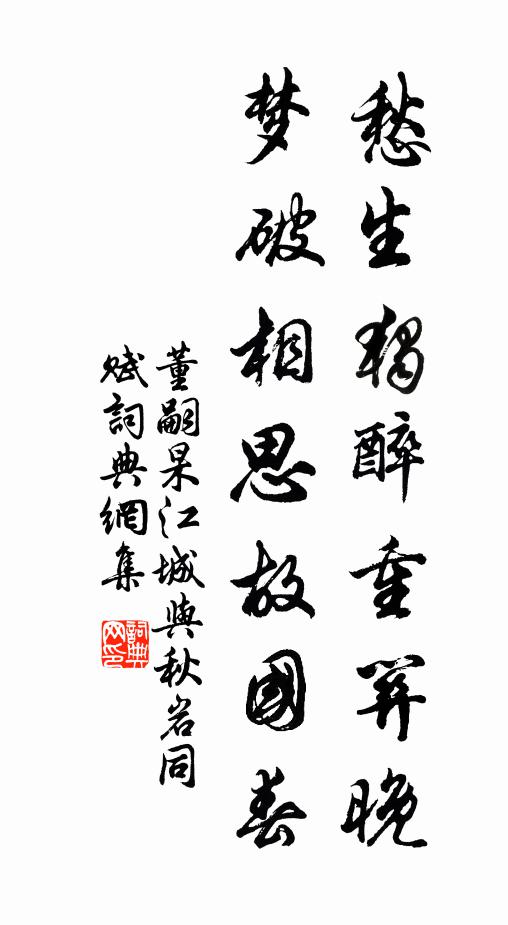 愁生獨醉重關晚
梦破相思故國春
董嗣杲江城與秋岩同
賦詞典網集
詞典网印